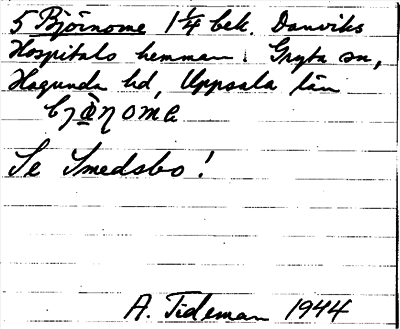 5 Björnome 1 1/4 bek. Danviks
Hospitals hemman. Gryta sn,
Hagunda hd, Uppsala län
Se Smedsbo!
A. Tideman 1944